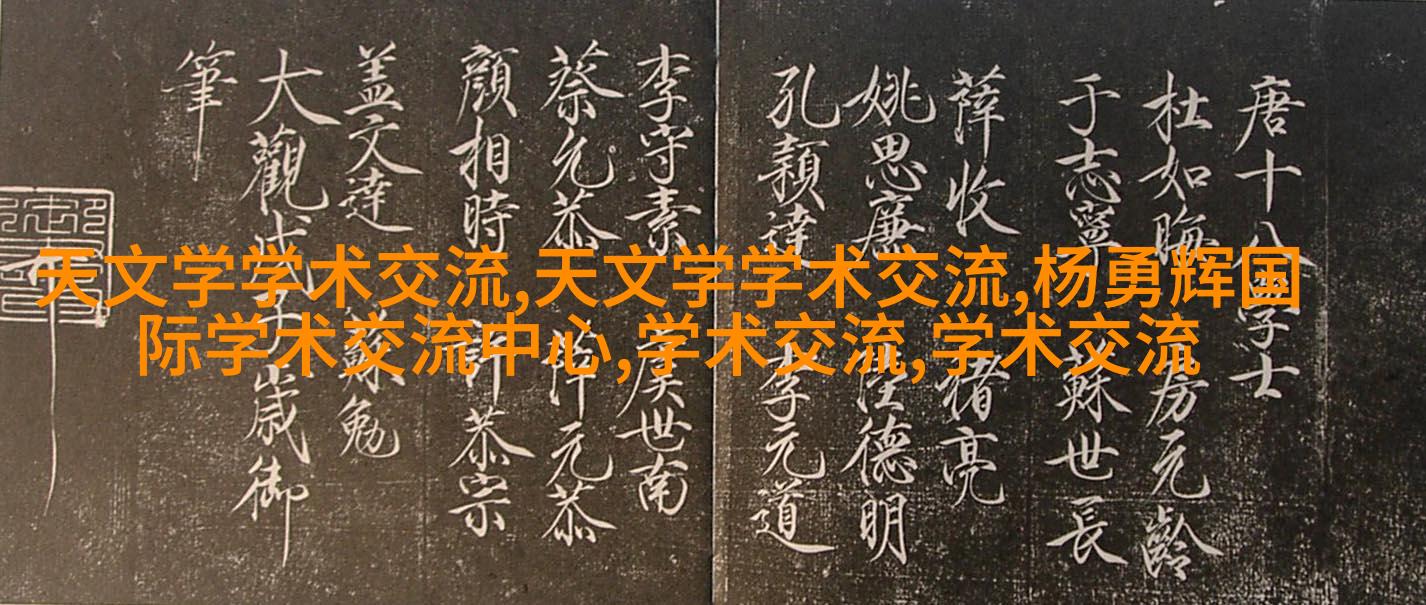 天文学学术交流,天文学学术交流,杨勇辉国
际学术交流中心,学术交流,学术交流
唐十八學士
杜如晦 房元齡
于志寧 蘇世長
薛收 褚亮
姚思廉 陸德明
孔穎達 李元道
李守素 虞世南
蔡允恭 薛元恭
顏相時 許恭宗
盖文達 蘇勉
大觀戊子歲御
筆